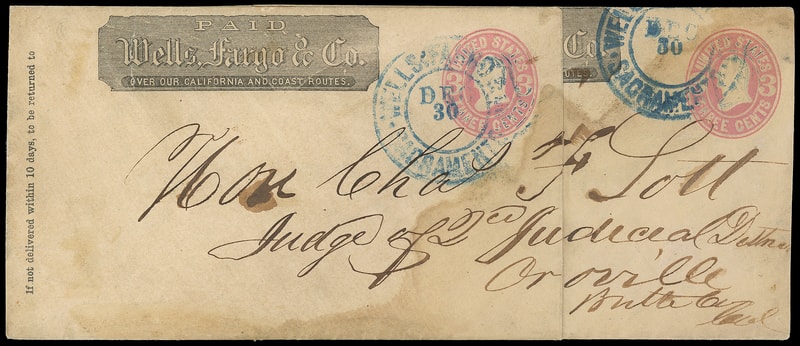 If not delivered within 10 days, to be returned to
PAID
Wells, Fargo & Co.
OVER OUR CALIFORNIA AND COAST ROUTES.
WELLS, FARGO
DE
30
SACRAMENTO
UNITED STATES
THREE CENTS
Co.
ROUTES.
WELLS
DEC
30
SACRAMEN
UNITED STATES
3
THREE CENTS
Hon Chas F Lott
Judge of 2nd Judicial Distri
Oroville
Butte Co
Cal